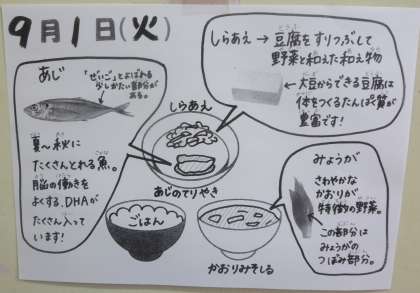 9月1日(火)
しらあえ → 豆腐をすりつぶして
野菜と和えた和え物
← 大豆からできる豆腐は
体をつくるたんぱく質が
豊富です!
あじ
「ぜいご」とよばれる
少しかたい部分が
ある。
夏〜秋に
たくさんとれる魚。
脳の働きを
よくする、DHAが
たくさん入って
います!
しらあえ
あじのてりやき
ごはん
かおりみそしる
みょうが
さわやかな
かおりが
特徴の野菜。
この部分は
みょうがの
つぼみ部分。